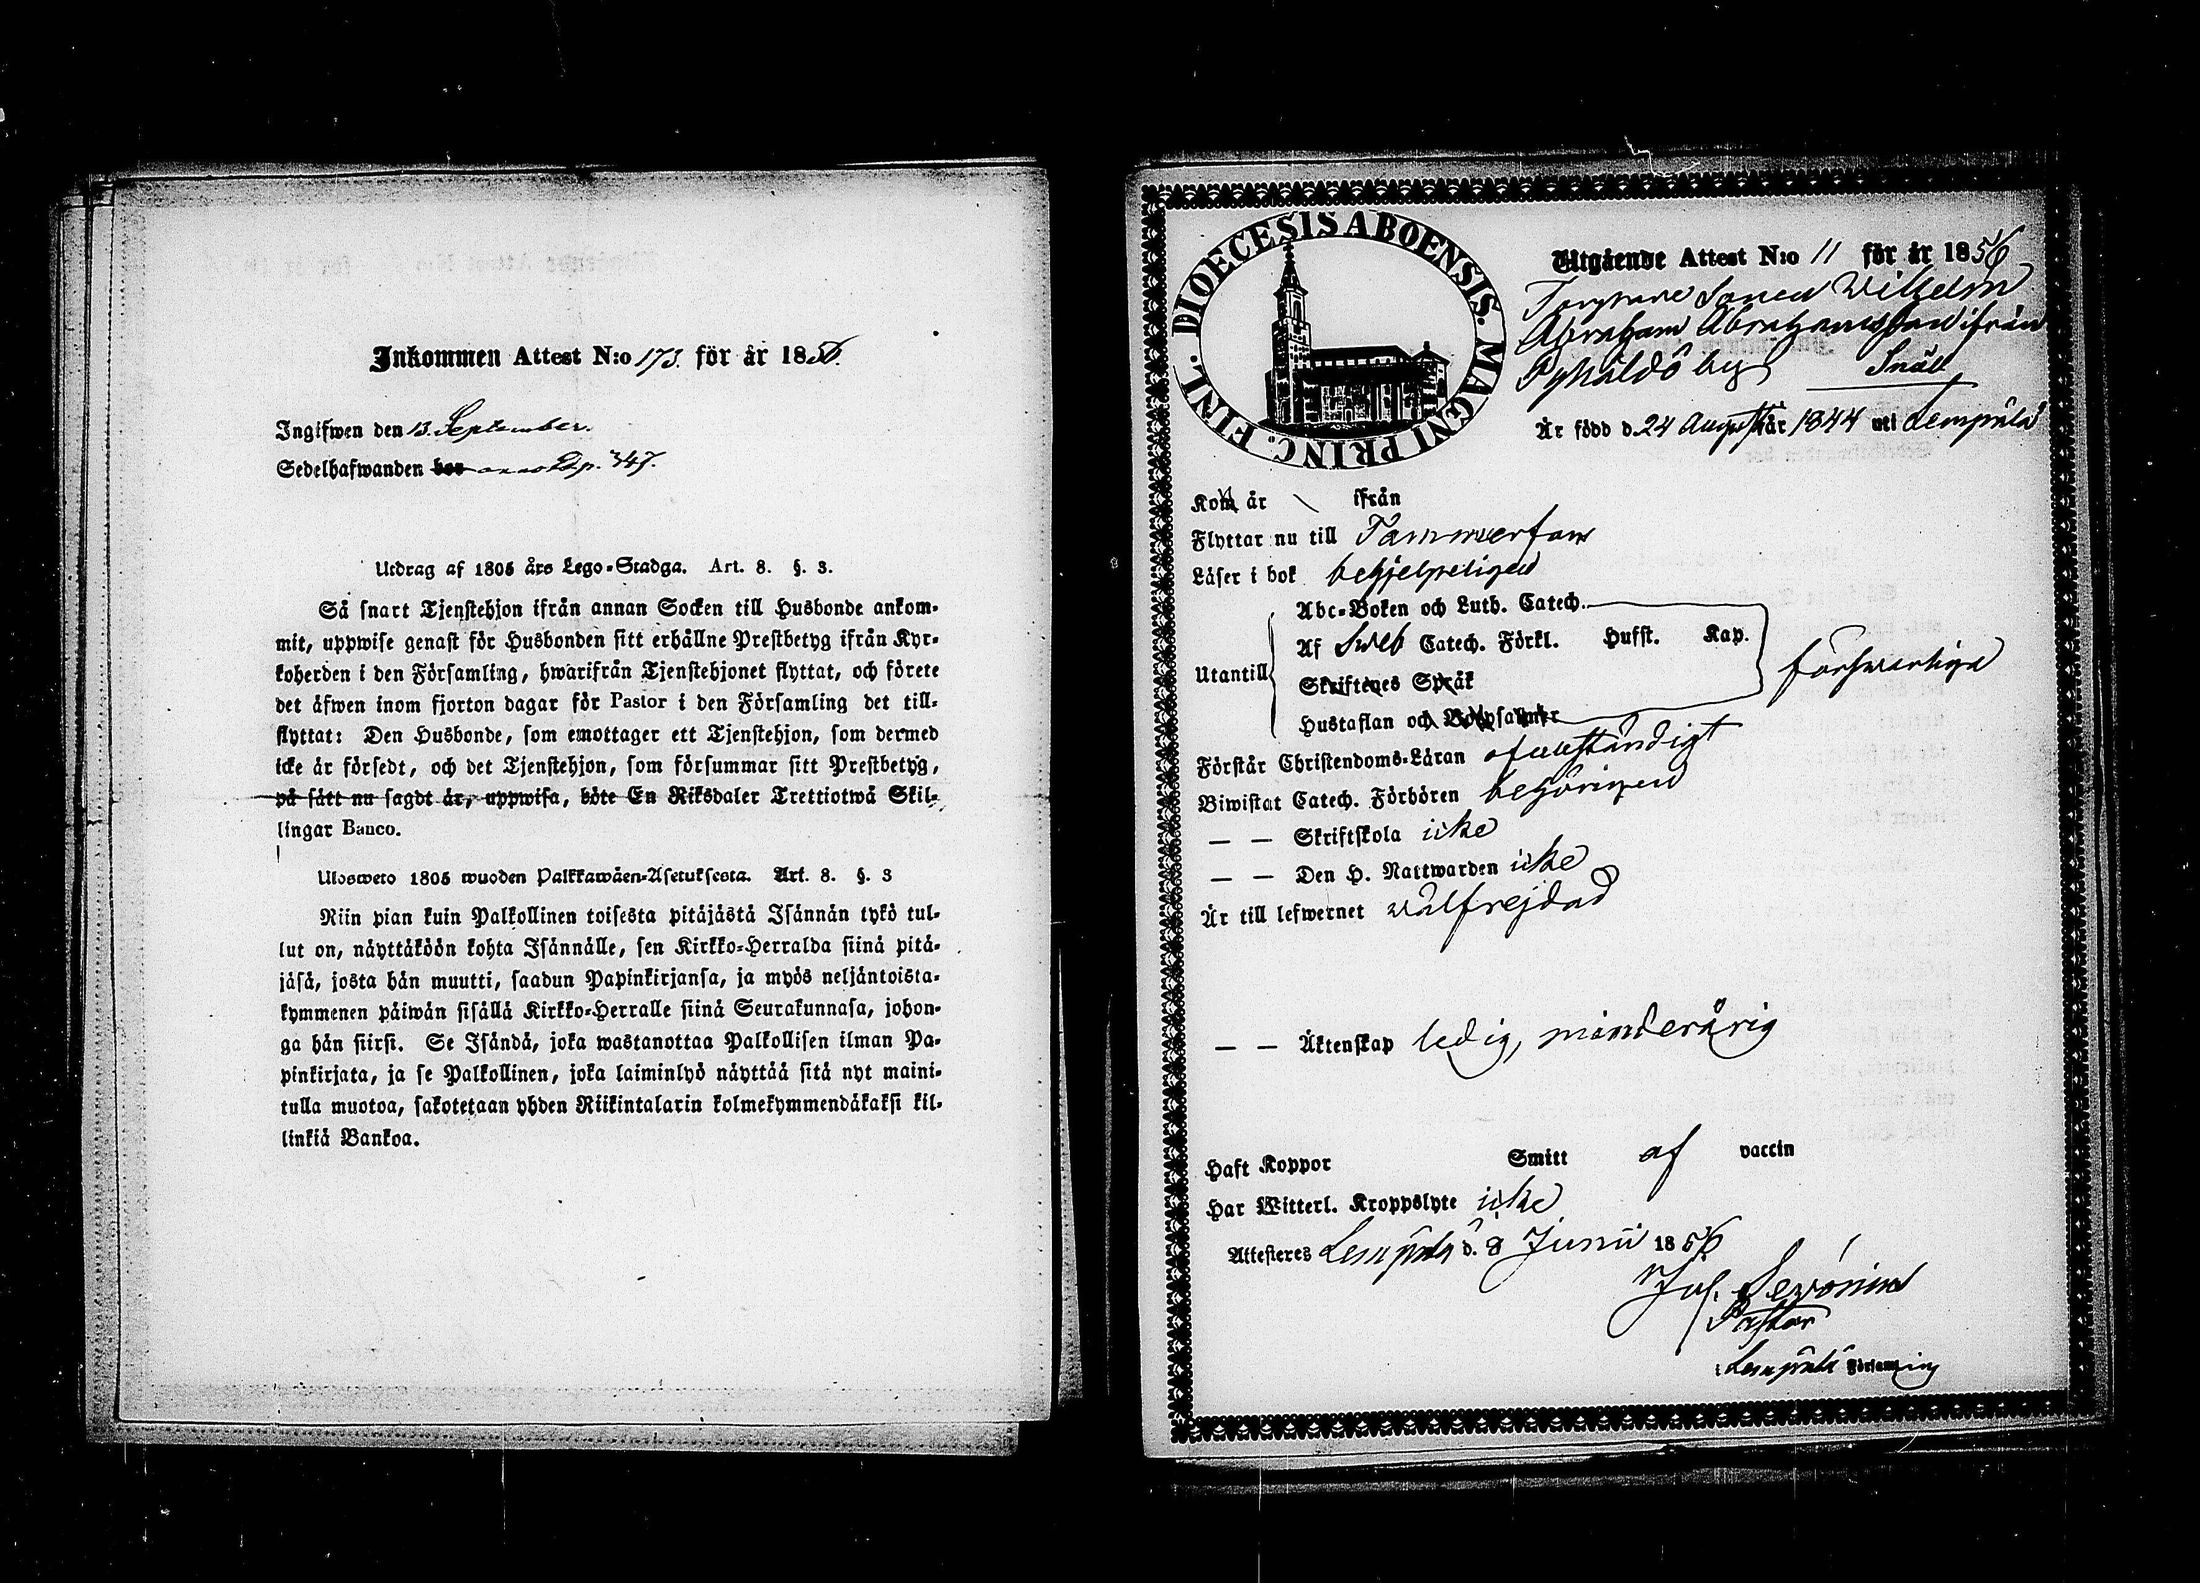 Inkommen Attest N:o 173. för år 1856.
Ingifwen den 13. September.
Sedelhafwanden bor anno Dp. 347.
Utdrag af 1805 års Lego-Stadga. Art. 8. §. 3.
Så snart Tjenstehjon ifrån annan Socken till Husbonde ankom-
mit, uppwise genast för Husbonden sitt erhållne Prestbetyg ifrån Kyr-
koherden i den Församling, hwarifrån Tjenstehjonet flyttat, och förete
det äfwen inom fjorton dagar för Pastor i den Församling det till-
flyttat: Den Husbonde, som emottager ett Tjenstehjon, som dermed
icke är försedt, och det Tjenstehjon, som försummar sitt Prestbetyg,
på sätt nu sagdt är, uppwisa, böte En Riksdaler Trettiotwå Skil-
lingar Banco.
Ulosweto 1805 wuoden Palkkawäen-Asetuksesta. Art. 8. §. 3
Niin pian kuin Palkollinen toisesta pitäjästä Isännän tykö tul-
lut on, näyttäköön kohta Isännälle, sen Kirkko-Herralda siinä pitä-
jäsä, josta hän muutti, saadun Papinkirjansa, ja myös neljäntoista-
kymmenen päiwän sisällä Kirkko-Herralle siinä Seurakunnasa, johon-
ga hän siirsi. Se Isändä, joka wastanottaa Palkollisen ilman Pa-
pinkirjata, ja se Palkollinen, joka laiminlyö näyttää sitä nyt maini-
tulla muotoa, sakotetaan yhden Riikintalarin kolmekymmendäkaksi kil-
linkiä Bankoa.
DIOECESIS ABOENSIS. MAGNI PRINC. FINL.
Utgående Attest N:o 11 för år 1856
Torpare Sonen Wilhelm
Abraham Abrahamsson ifrån
Pyhältö by Snäll
Är född d. 24 Augusti år 1844 uti Lempälä
Kom år ifrån
Flyttar nu till Tammerfors
Läser i bok behjelpeligen
Utantill
Abc-Boken och Luth. Catech.
Af Sweb Catech. Förkl. Hufst. Kap.
Skriftenes Språk
Hustaflan och Botpsalmer
försvarliga
Förstår Christendoms-Läran ofullständigt
Biwistat Catech. Förhören behörigen
— — Skriftskola icke
— — Den H. Nattwarden icke
Är till lefwernet wälfrejdad
— — Äktenskap ledig, minderårig
Haft Koppor Smitt af vaccin
Har Witterl. Kroppslyte icke
Attesteres Lempälä d. 8 Junii 1856
Jos. Sevonius
Pastor
i Lempälä Församling